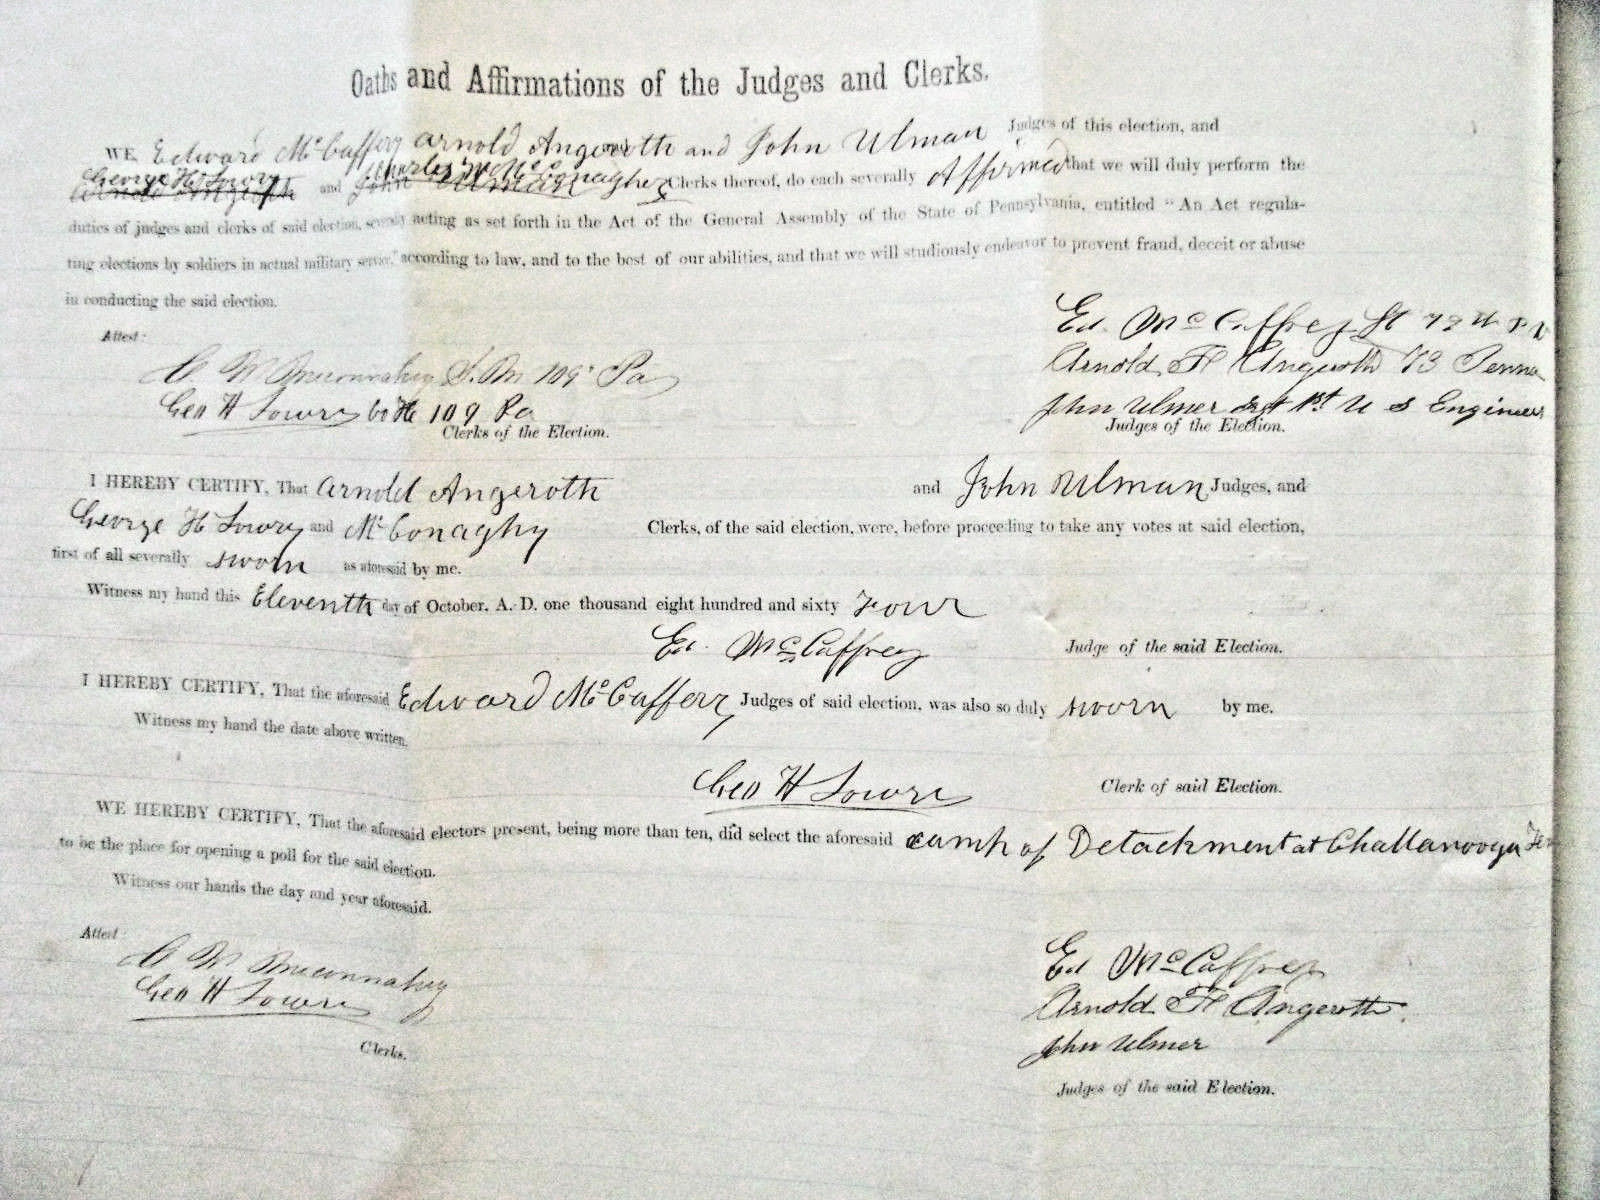 Oaths and Affirmations of the Judges and Clerks.
WE, Edward McCafferr Arnold Angeroth and John Ulman Judges of this election, and
George H Lowry and Charles W McConaghey Clerks thereof, do each severally Affirmed that we will duly perform the
duties of judges and clerks of said election, severally acting as set forth in the Act of the General Assembly of the State of Pennsylvania, entitled "An Act regula-
ting elections by soldiers in actual military service," according to law, and to the best of our abilities, and that we will studiously endeavor to prevent fraud, deceit or abuse
in conducting the said election.
Attest:
Ed. McCaffrey Lt 79th P V
Arnold H Angeroth 73 Penna
John Ulmer Sgt 1st U S Engineers
Judges of the Election.
C W McConnahey 109 Pa
Geo H Lowry Co H 109 Pa
Clerks of the Election.
I HEREBY CERTIFY, That Arnold Angeroth and John Ulman Judges, and
George H Lowry and McConaghy Clerks, of the said election, were, before proceeding to take any votes at said election,
first of all severally sworn as aforesaid by me.
Witness my hand this Eleventh day of October, A. D. one thousand eight hundred and sixty Four
Ed. McCaffrey Judge of the said Election.
I HEREBY CERTIFY, That the aforesaid Edward McCafferr, Judges of said election, was also so duly sworn by me.
Witness my hand the date above written.
Geo H Lowry Clerk of said Election.
WE HEREBY CERTIFY, That the aforesaid electors present, being more than ten, did select the aforesaid camp of Detachment at Chattanooga Ten
to be the place for opening a poll for the said election.
Witness our hands the day and year aforesaid.
Attest
C W McConnahey
Geo H Lowry
Clerks.
Ed McCaffrey
Arnold H Angeroth.
John Ulmer
Judges of the said Election.